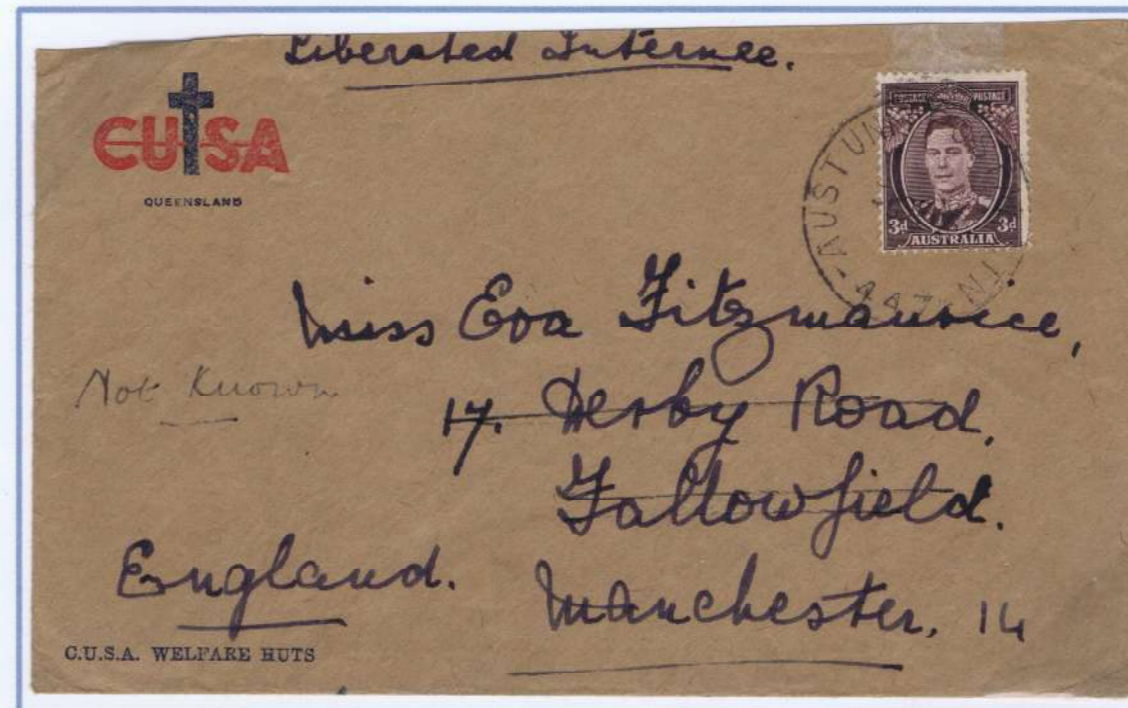 Liberated Internee.
CUSA
QUEENSLAND
POSTAGE POSTAGE
3d 3d
AUSTRALIA
AUST UNI
447
Miss Eva Fitzmaurice,
Not Known
17. Derby Road,
Fallowfield.
England.
Manchester, 14
C.U.S.A. WELFARE HUTS